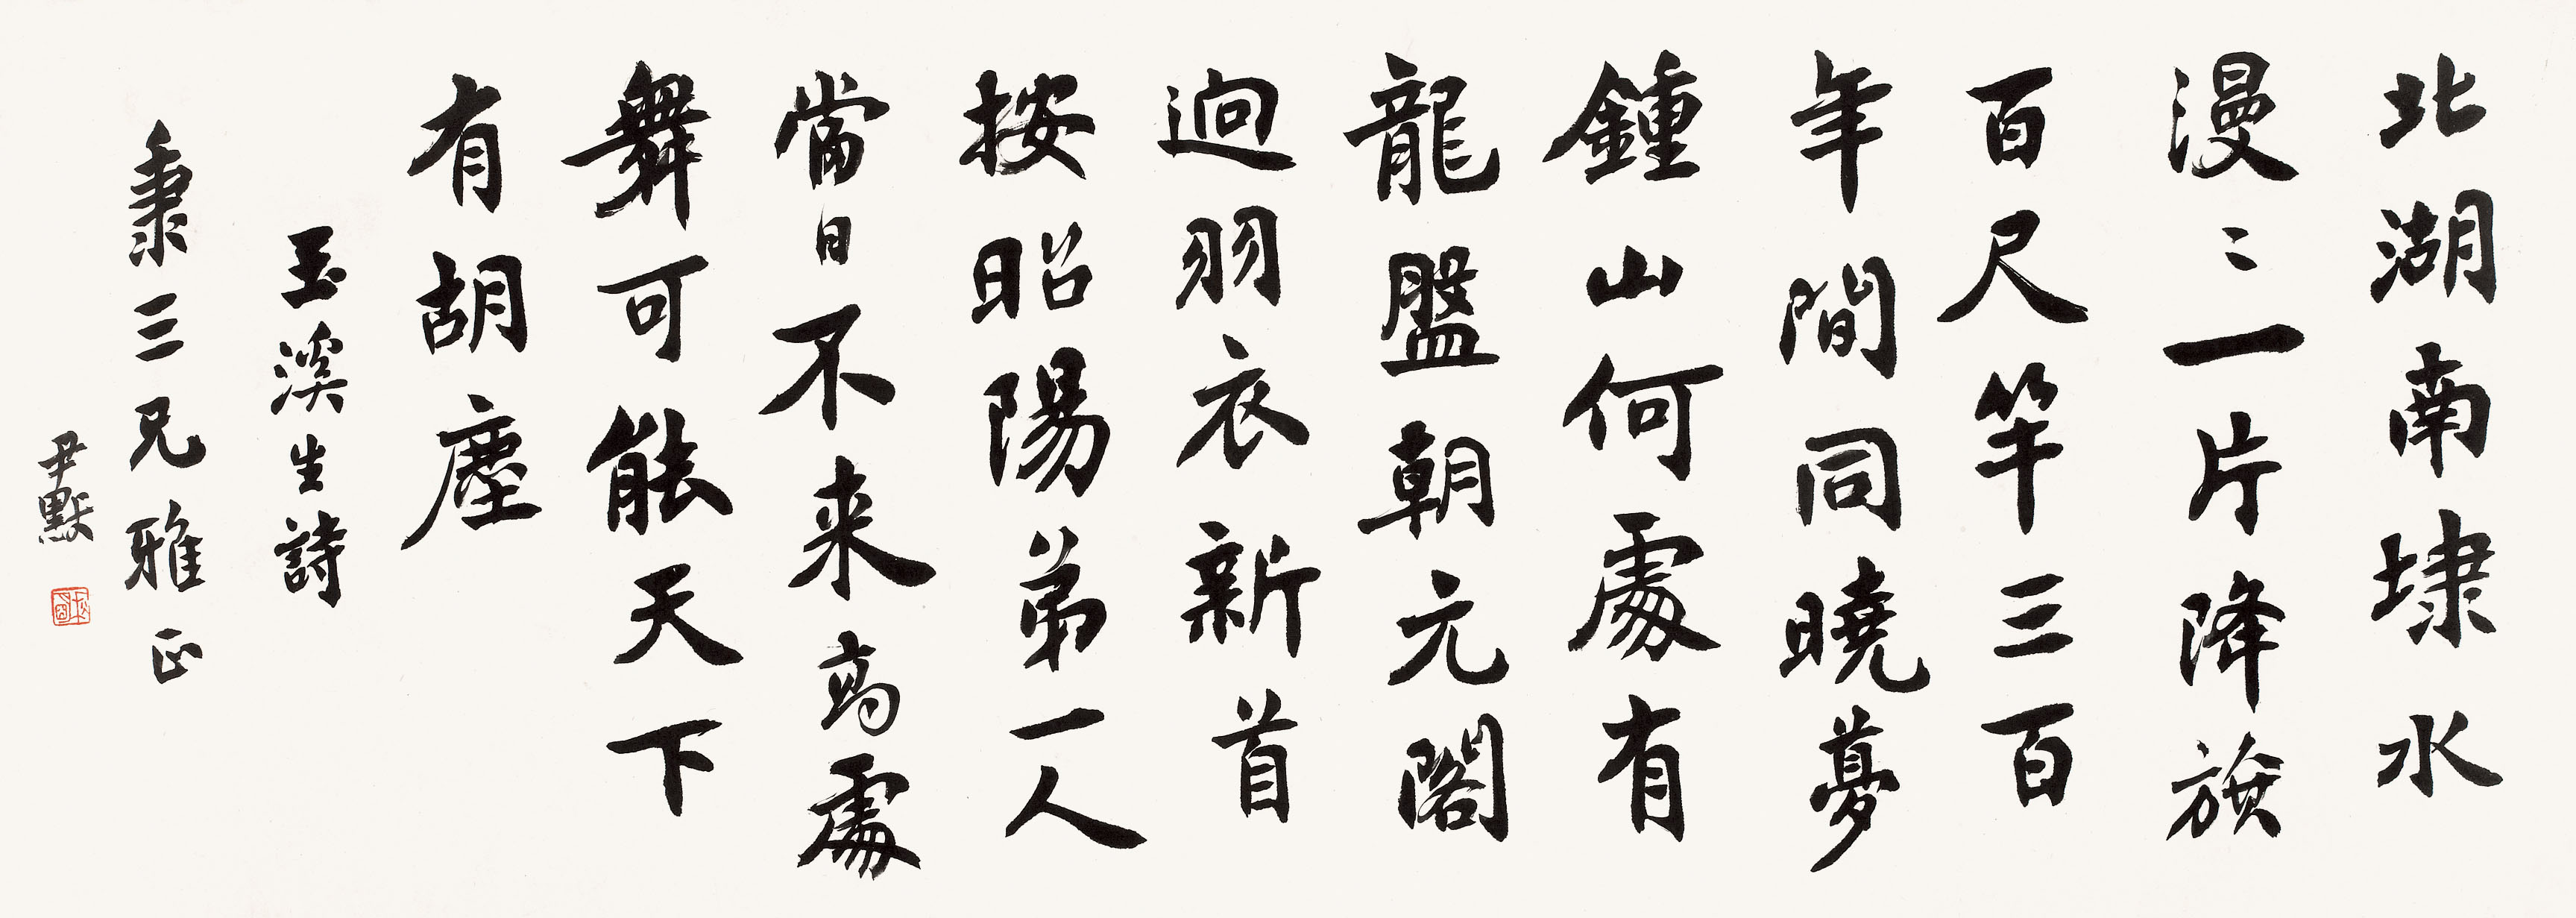 北湖南埭水
漫〻一片降旗
百尺竿三百
年間同曉夢
鍾山何處有
龍盤朝元閣
迥羽衣新首
按昭陽弟一人
當日不来高處
舞可能天下
有胡塵
玉溪生詩
秉三兄雅正
尹默